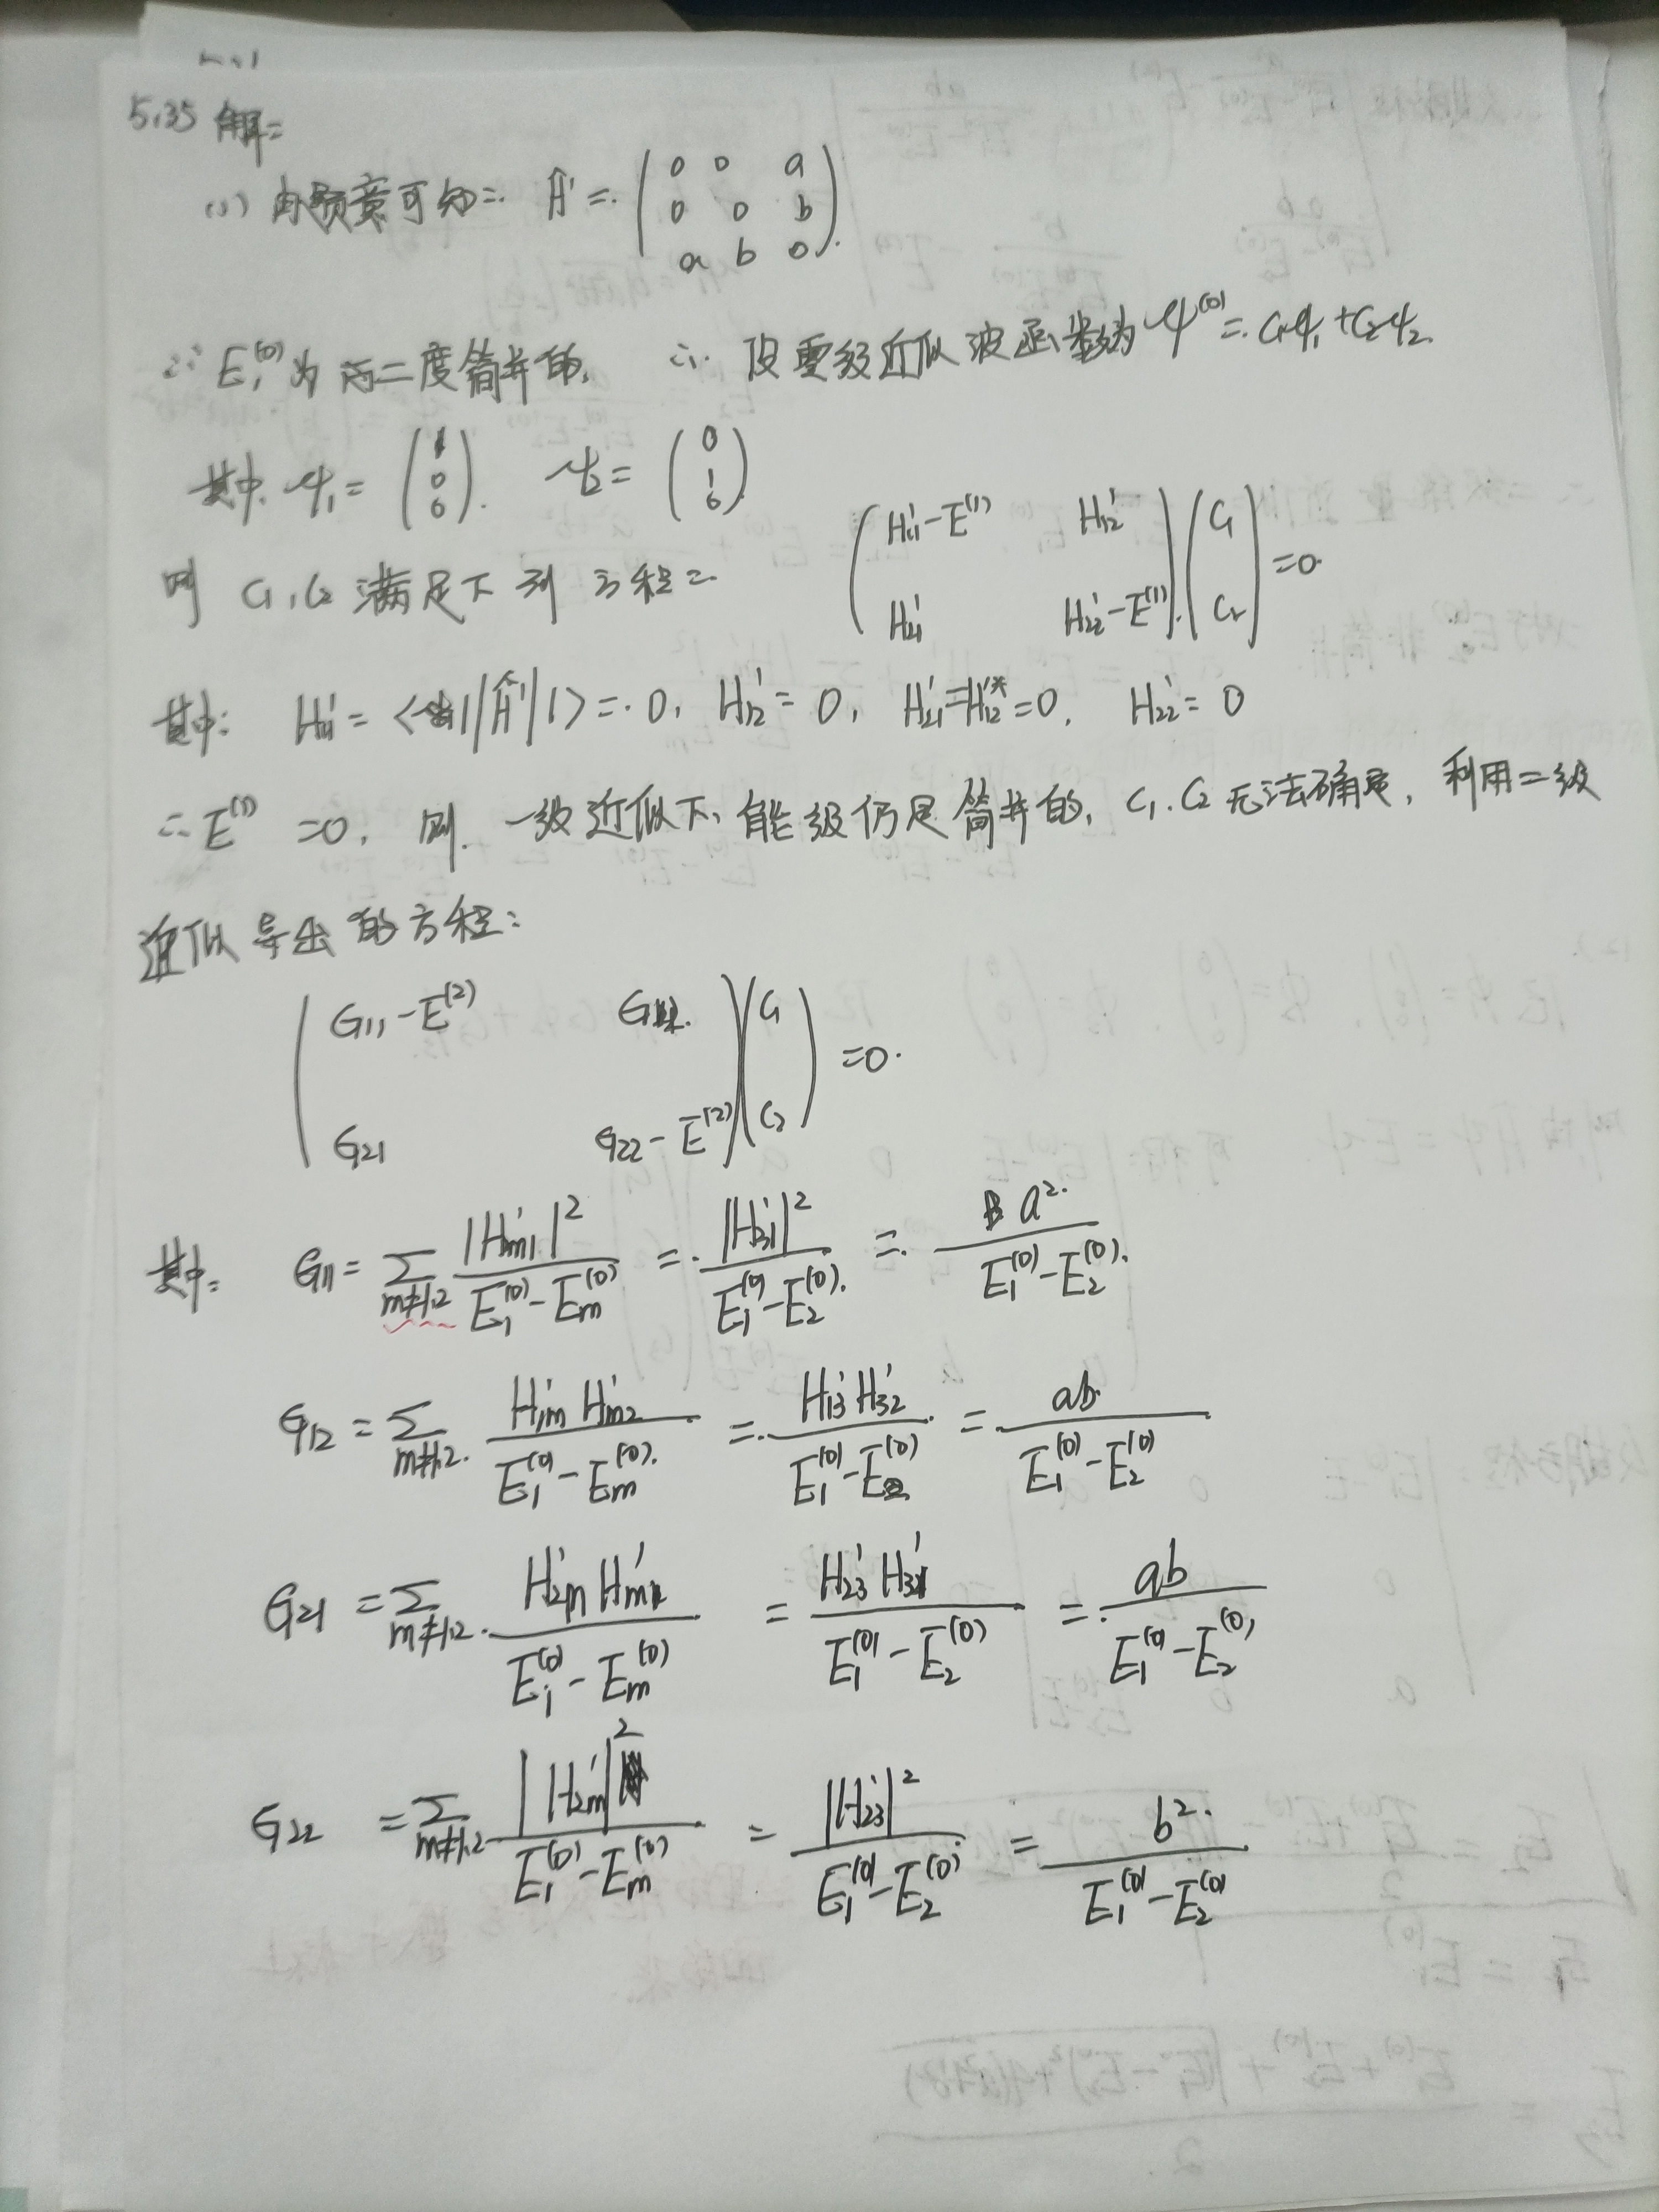 5.35 解:
(1) 由题意可知: Ĥ' = ( 0 0 a
0 0 b
a b 0 ).
∵ E₁⁽⁰⁾为 二度简并的, ∴ 设零级近似波函数为 ψ⁽⁰⁾ = c₁ψ₁ + c₂ψ₂.
其中. ψ₁ = (1 0 0). ψ₂ = (0 1 0)
则 C₁, C₂ 满足下列方程: ( H₁₁' - E⁽¹⁾ H₁₂' ; H₂₁' H₂₂' - E⁽¹⁾ ) ( C₁ ; C₂ ) = 0.
其中: H₁₁' = <1|Ĥ'|1> = 0, H₁₂' = 0, H₂₁' = H₁₂'* = 0, H₂₂' = 0
∴ E⁽¹⁾ = 0, 则. 一级近似下, 能级仍是简并的, C₁, C₂ 无法确定, 利用二级
近似导出的方程:
( G₁₁ - E⁽²⁾ G₁₂ ; G₂₁ G₂₂ - E⁽²⁾ ) ( C₁ ; C₂ ) = 0.
其中: G₁₁ = Σ_{m≠1,2} |H'm₁|² / (E₁⁽⁰⁾ - Em⁽⁰⁾) = |H₃₁'|² / (E₁⁽⁰⁾ - E₂⁽⁰⁾) = a² / (E₁⁽⁰⁾ - E₂⁽⁰⁾).
G₁₂ = Σ_{m≠1,2} H'₁m H'm₂ / (E₁⁽⁰⁾ - Em⁽⁰⁾) = H₁₃' H₃₂' / (E₁⁽⁰⁾ - E₂⁽⁰⁾) = ab / (E₁⁽⁰⁾ - E₂⁽⁰⁾)
G₂₁ = Σ_{m≠1,2} H'₂m H'm₁ / (E₁⁽⁰⁾ - Em⁽⁰⁾) = H₂₃' H₃₁' / (E₁⁽⁰⁾ - E₂⁽⁰⁾) = ab / (E₁⁽⁰⁾ - E₂⁽⁰⁾)
G₂₂ = Σ_{m≠1,2} |H'₂m|² / (E₁⁽⁰⁾ - Em⁽⁰⁾) = |H₂₃'|² / (E₁⁽⁰⁾ - E₂⁽⁰⁾) = b² / (E₁⁽⁰⁾ - E₂⁽⁰⁾)